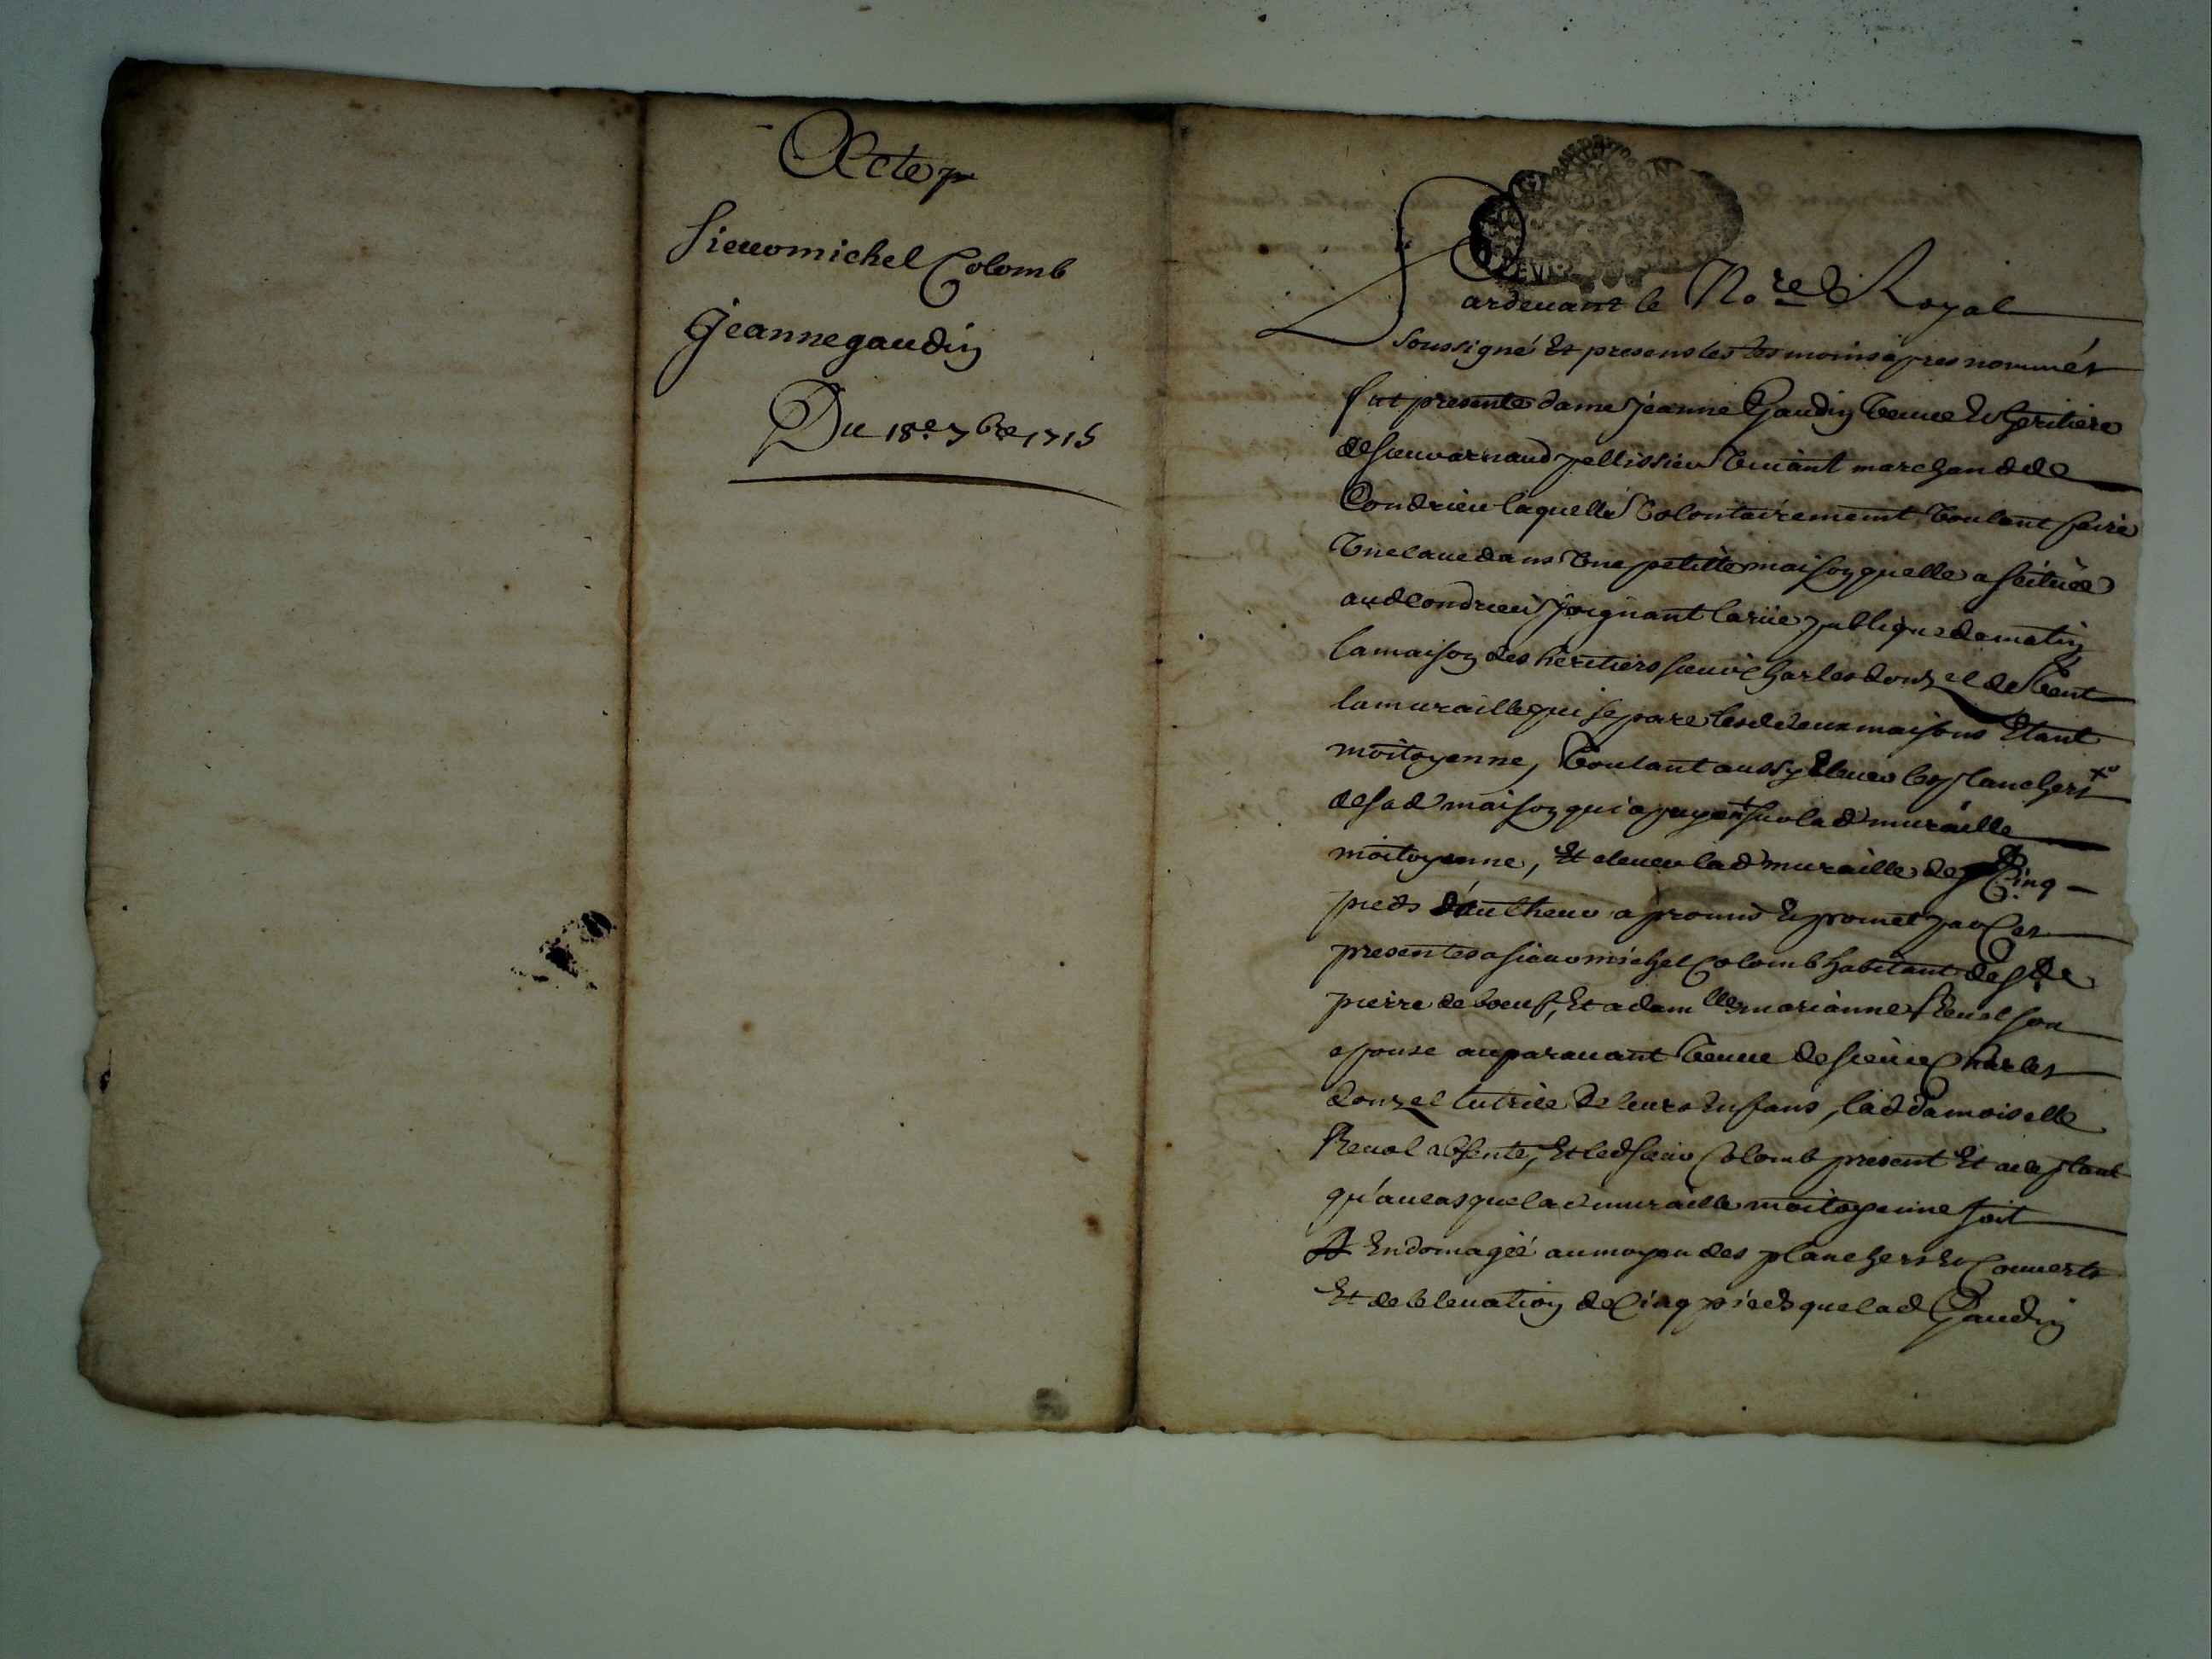 Acte pr
sieur michel Colomb
jeanne gaudin
Du 18e 7bre 1715
Pardevant le Nore Royal
soussigné Et presens les tesmoins apres nommés
fut presente dame jeanne Gaudin Veuve Et heritiere
de sieur arnaud pellissier Vivant marchand de
Condrieu laquelle Volontairement Voulant faire
Une cave dans Une petitte maison quelle a scituée
aud Condrieu joignant la rüe publique de matin
la maison des héritiers sieur Charles donzel de Vent
la muraille qui separe lesd deux maisons Etant
moitoyenne, Voulant aussy Elever les planchers
de sad maison qui apuyent sur lad muraille
moitoyenne, Et elever lad muraille de Cinq
pieds d'autheur a promis Et promet par Ces
presentes a sieur michel Colomb habitant de St
pierre de boeuf, Et a damlle marianne Revol son
epouse auparavant Veuve de sieur Charles
donzel tutrice de leurs Enfans, lad damoiselle
Revol absente, Et led sieur Colomb présent Et aceptant
qu'au cas que lad muraille moitoyenne soit
Endomagée au moyen des planchers Et Couverts
Et de lelevation de Cinq pieds que lad Gaudin